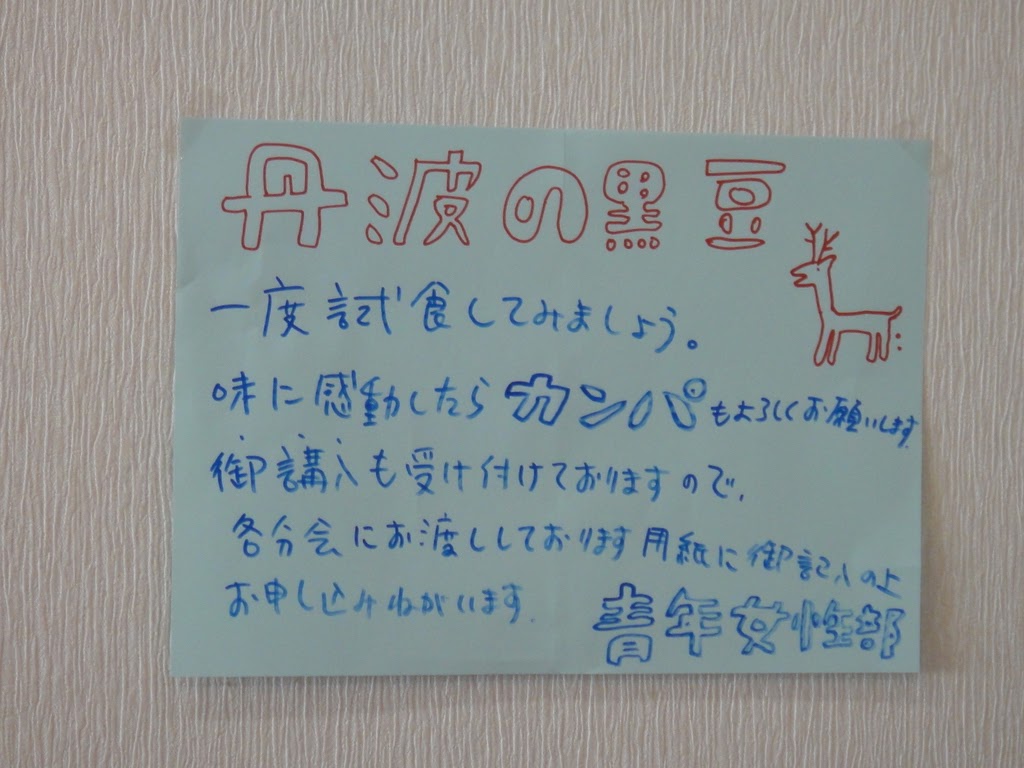 丹波の黒豆
一度試食してみましょう。
味に感動したらカンパもよろしくお願いします
御講入も受け付けておりますので、
各分会にお渡ししております用紙に御記入の上
お申し込みねがいます.
青年女性部